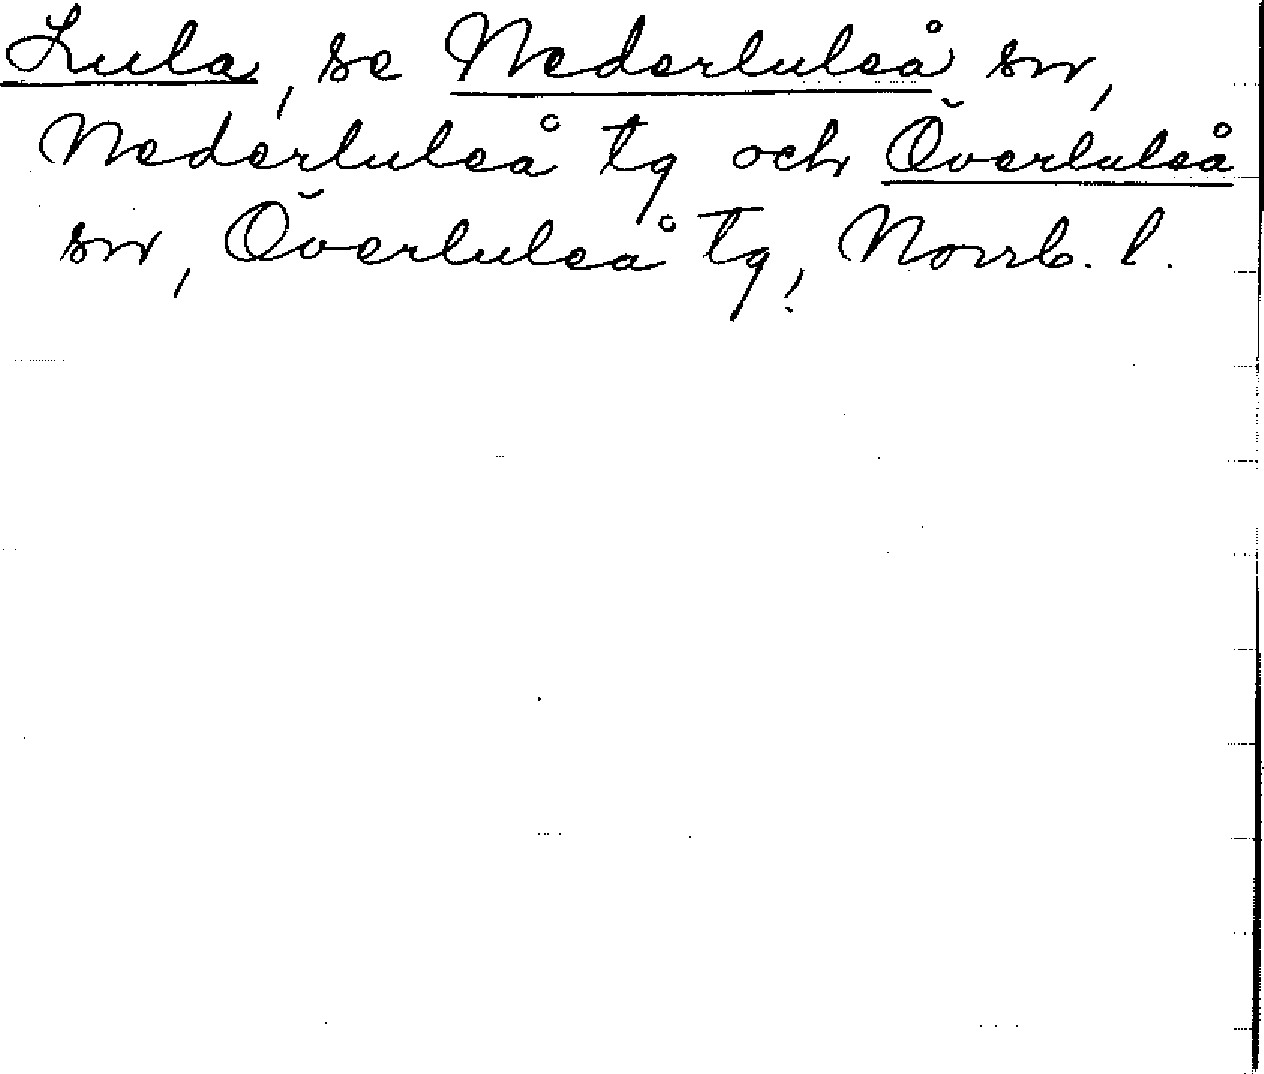 Lula, se Nederluleå sn,
Nederluleå tg och Överluleå
sn, Överluleå tg, Norrb. l.